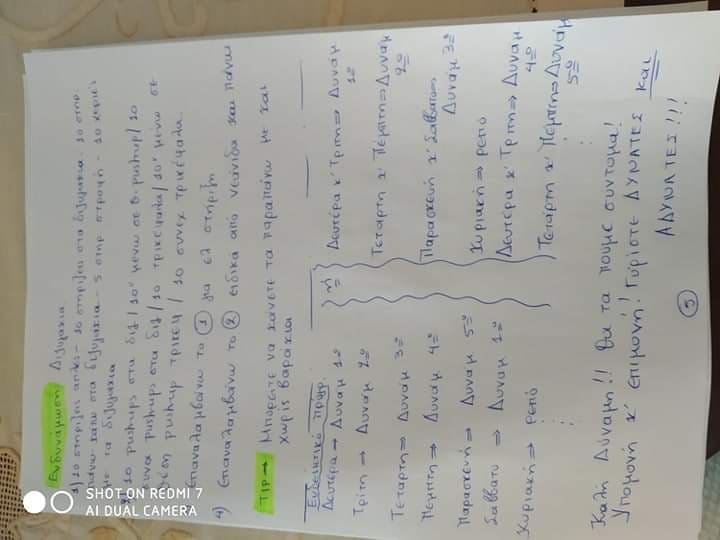 Ενδυνάμωση Διζυμακια
1) 10 στηρίξεις απλές - 10 στηρίξεις στα διζυμακια - 10 στηρ.
πάνω κάτω στα διζυμάκια - 5 στηρ στροφή - 10 χεριές
με τα διζυμάκια
2) 10 pushups στα διζ / 10" μένω σε θ. pushup / 10
συνεχ pushups στα διζ / 10 τρικέφαλα / 10" μένω σε
θέση pushup τρικεφ / 10 συνεχ τρικέφαλα.
Επαναλαμβάνω το 1 για ελ στηριξη
4) Επαναλαμβάνω το 2 ειδικα από νεάνιδα και πάνω
TIP → Μπορείτε να κάνετε τα παραπάνω με και
χωρίς βαράκια
Ενδεικτικό Πρόγρ.
Δευτέρα → Δυναμ 1ο
Τρίτη → Δυναμ 2ο
Τετάρτη → Δυναμ 3ο
Πέμπτη → Δυναμ 4ο
Παρασκευή → Δυναμ 5ο
Σάββατο → Δυναμ 1ο
Κυριακή → ρεπό
ή
Δευτέρα κ' Τρίτη ⇒ Δυναμ
1ο
Τετάρτη κ' Πέμπτη ⇒ Δυναμ
2ο
Παρασκευή κ' Σάββατο ⇒
Δυναμ 3ο
Κυριακή ⇒ ρεπό
Δευτέρα κ' Τρίτη ⇒ Δυναμ
4ο
Τετάρτη κ' Πέμπτη ⇒ Δυναμ
5ο
Καλή Δύναμη!! Θα τα πούμε σύντομα!
Υπομονή κ' επιμονή! Γυρίστε ΔΥΝΑΤΕΣ και
ΑΔΥΝΑΤΕΣ!!!
5
SHOT ON REDMI 7
AI DUAL CAMERA